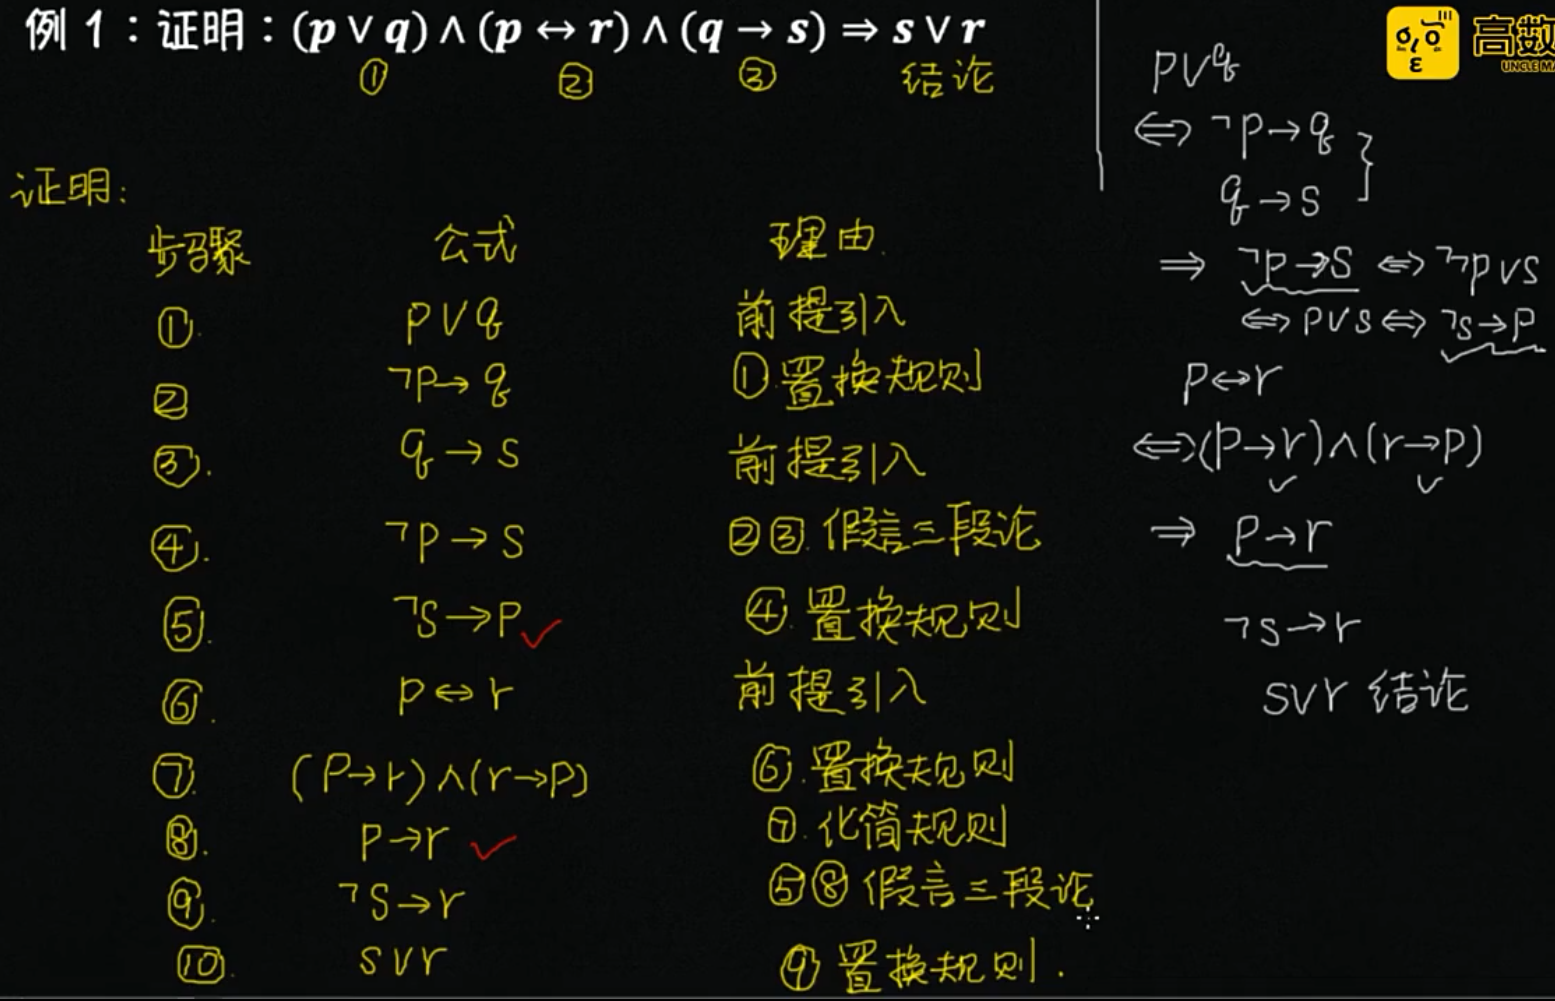 例 1：证明：(p ∨ q) ∧ (p ↔ r) ∧ (q → s) ⇒ s ∨ r
① ② ③ 结论
证明:
步骤 公式 理由.
①. p∨q 前提引入
② ¬p→q ①.置换规则
③. q→s 前提引入
④. ¬p→s ②③.假言三段论
⑤. ¬s→p ④.置换规则
⑥. p↔r 前提引入
⑦. (p→r)∧(r→p) ⑥.置换规则
⑧. p→r ⑦.化简规则
⑨. ¬s→r ⑤⑧假言三段论
⑩. s∨r ⑨置换规则.
p∨q
⇔ ¬p→q
q→s
⇒ ¬p→s ⇔ ¬¬p∨s
⇔ p∨s ⇔ ¬s→p
p↔r
⇔(p→r)∧(r→p)
⇒ p→r
¬s→r
s∨r 结论
高数
UNCLE MA